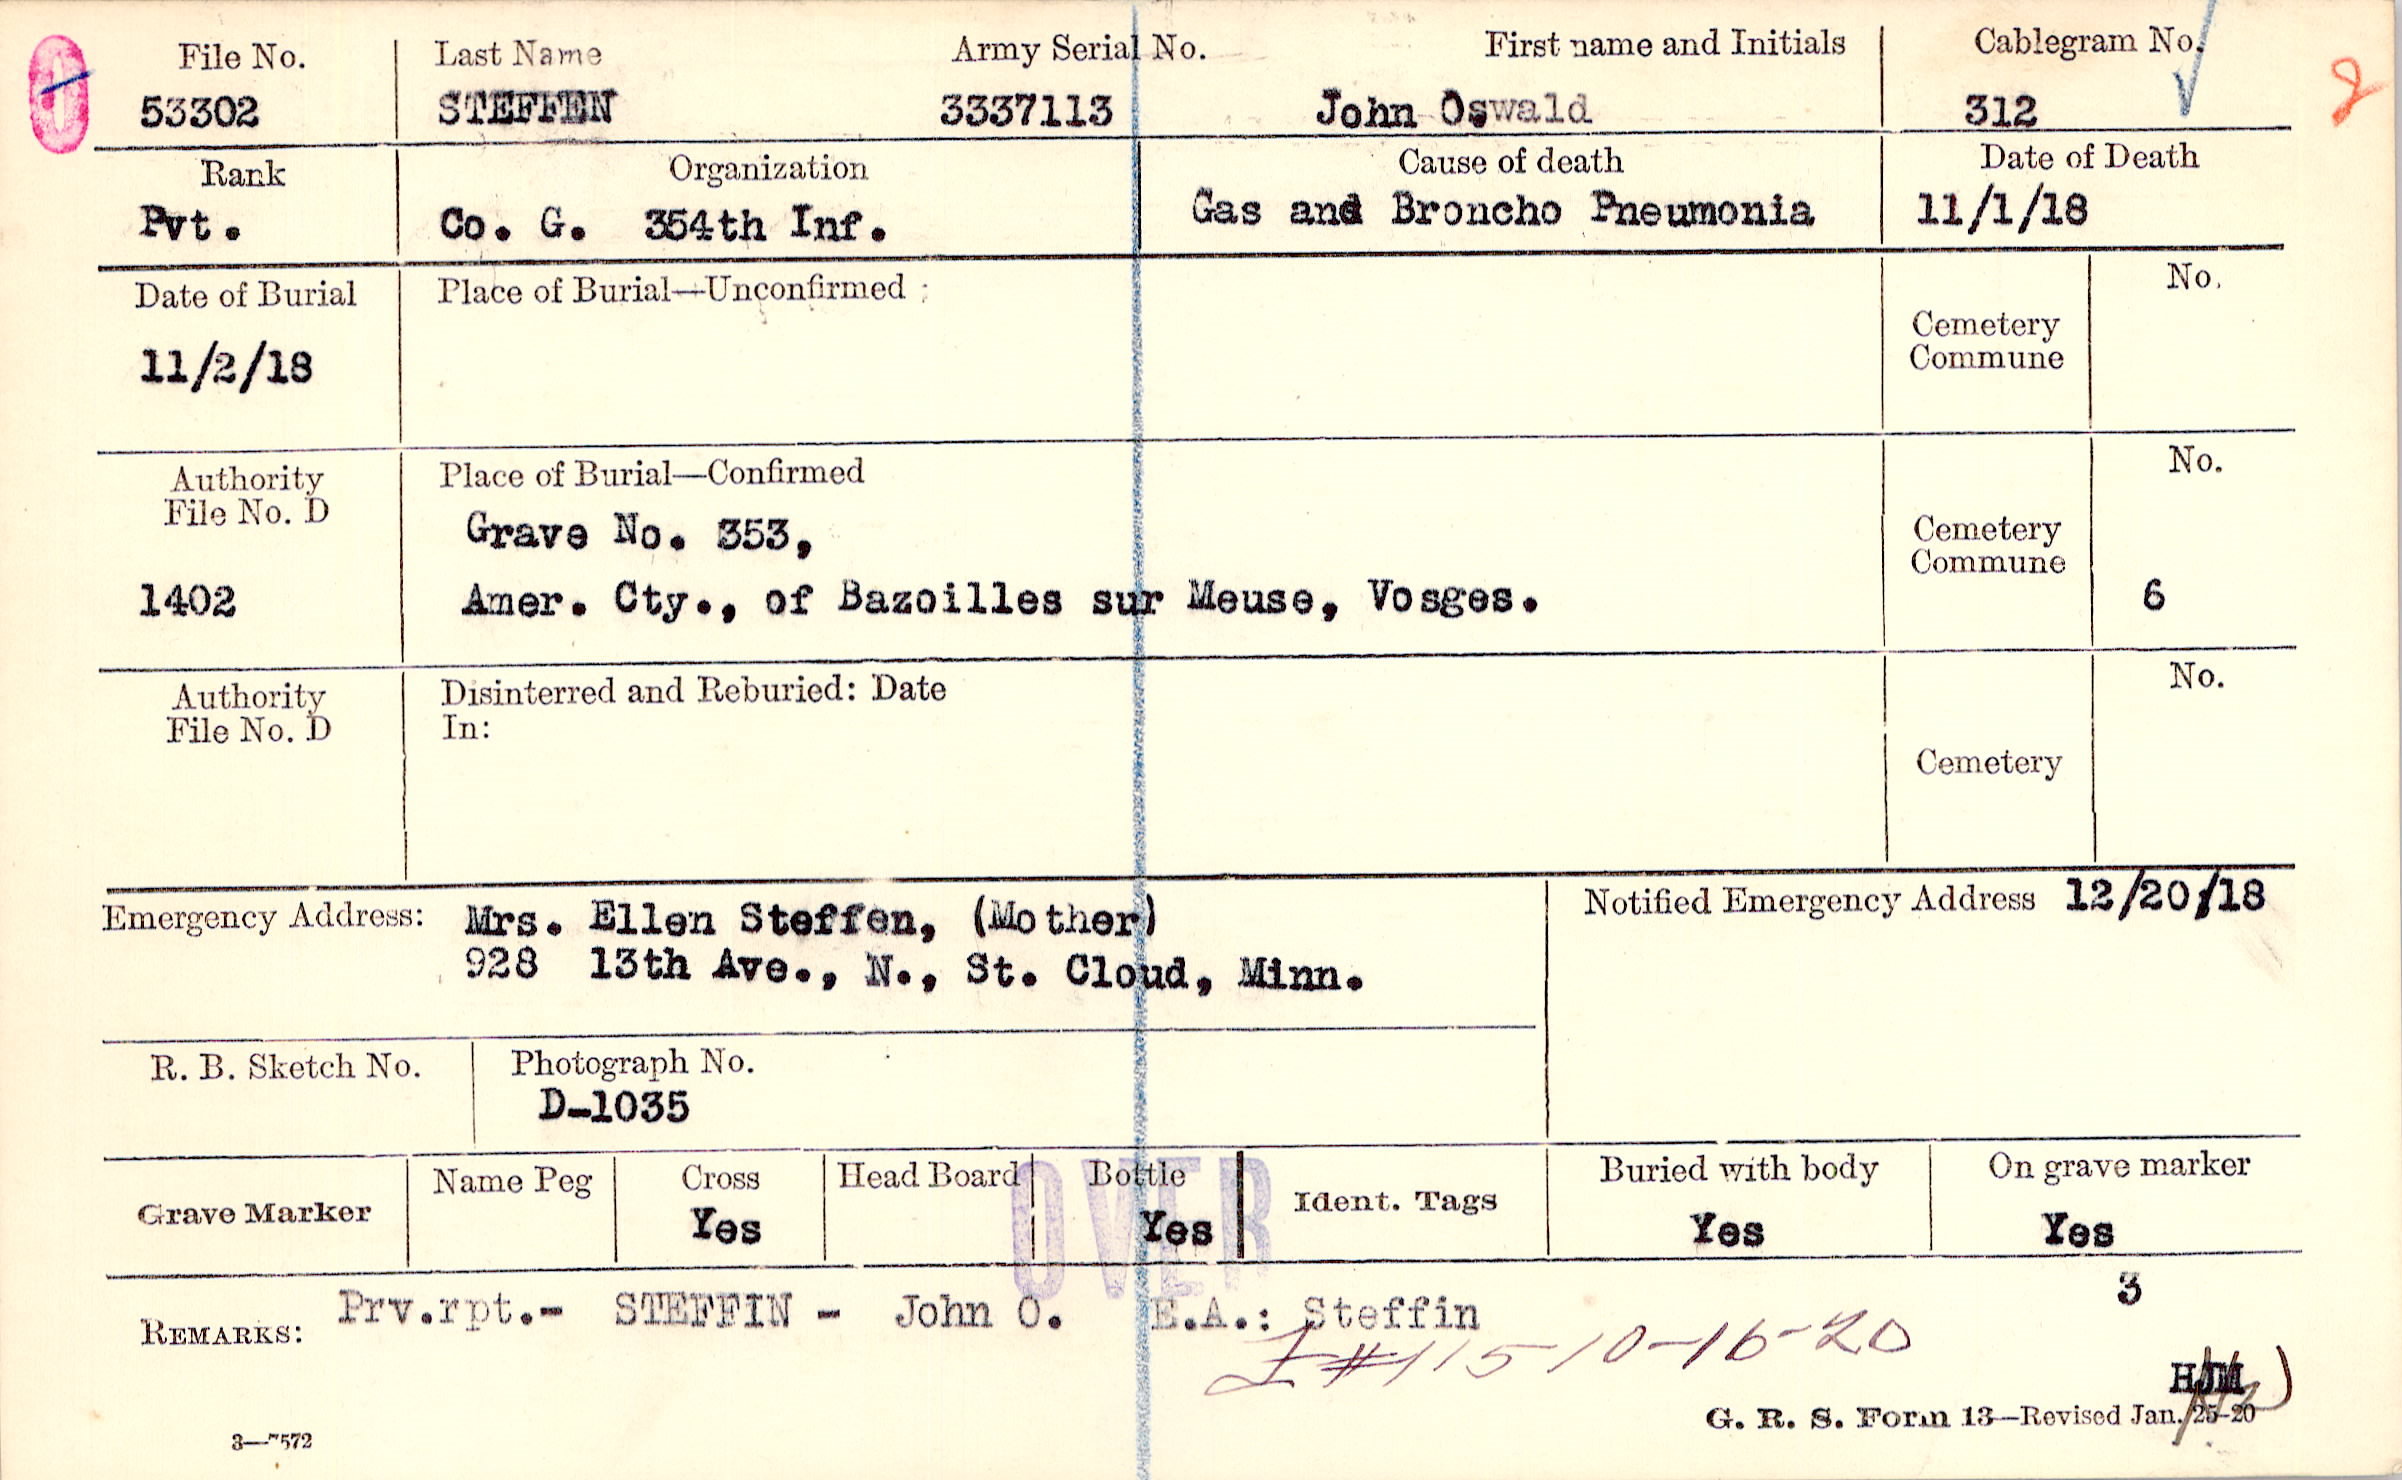 File No. Last Name Army Serial No. First name and Initials Cablegram No.
53302 STEFFEN 3337113 John Oswald 312
2
Rank Organization Cause of death Date of Death
Pvt. Co. G. 354th Inf. Gas and Broncho Pneumonia 11/1/18
Date of Burial Place of Burial—Unconfirmed Cemetery Commune No.
11/2/18
Authority File No. D Place of Burial—Confirmed Cemetery Commune No.
Grave No. 353,
1402 Amer. Cty., of Bazoilles sur Meuse, Vosges. 6
Authority File No. D Disinterred and Reburied: Date No.
In:
Cemetery
Emergency Address: Mrs. Ellen Steffen, (Mother) Notified Emergency Address 12/20/18
928 13th Ave., N., St. Cloud, Minn.
R. B. Sketch No. Photograph No.
D-1035
Grave Marker Name Peg Cross Head Board Bottle Ident. Tags Buried with body On grave marker
Yes Yes Yes Yes
OVER
3
REMARKS: Prv.rpt.- STEFFIN - John O. E.A.: Steffin
I#115-10-16-20
HJM
G. R. S. Form 13—Revised Jan. 25-20
3—7572